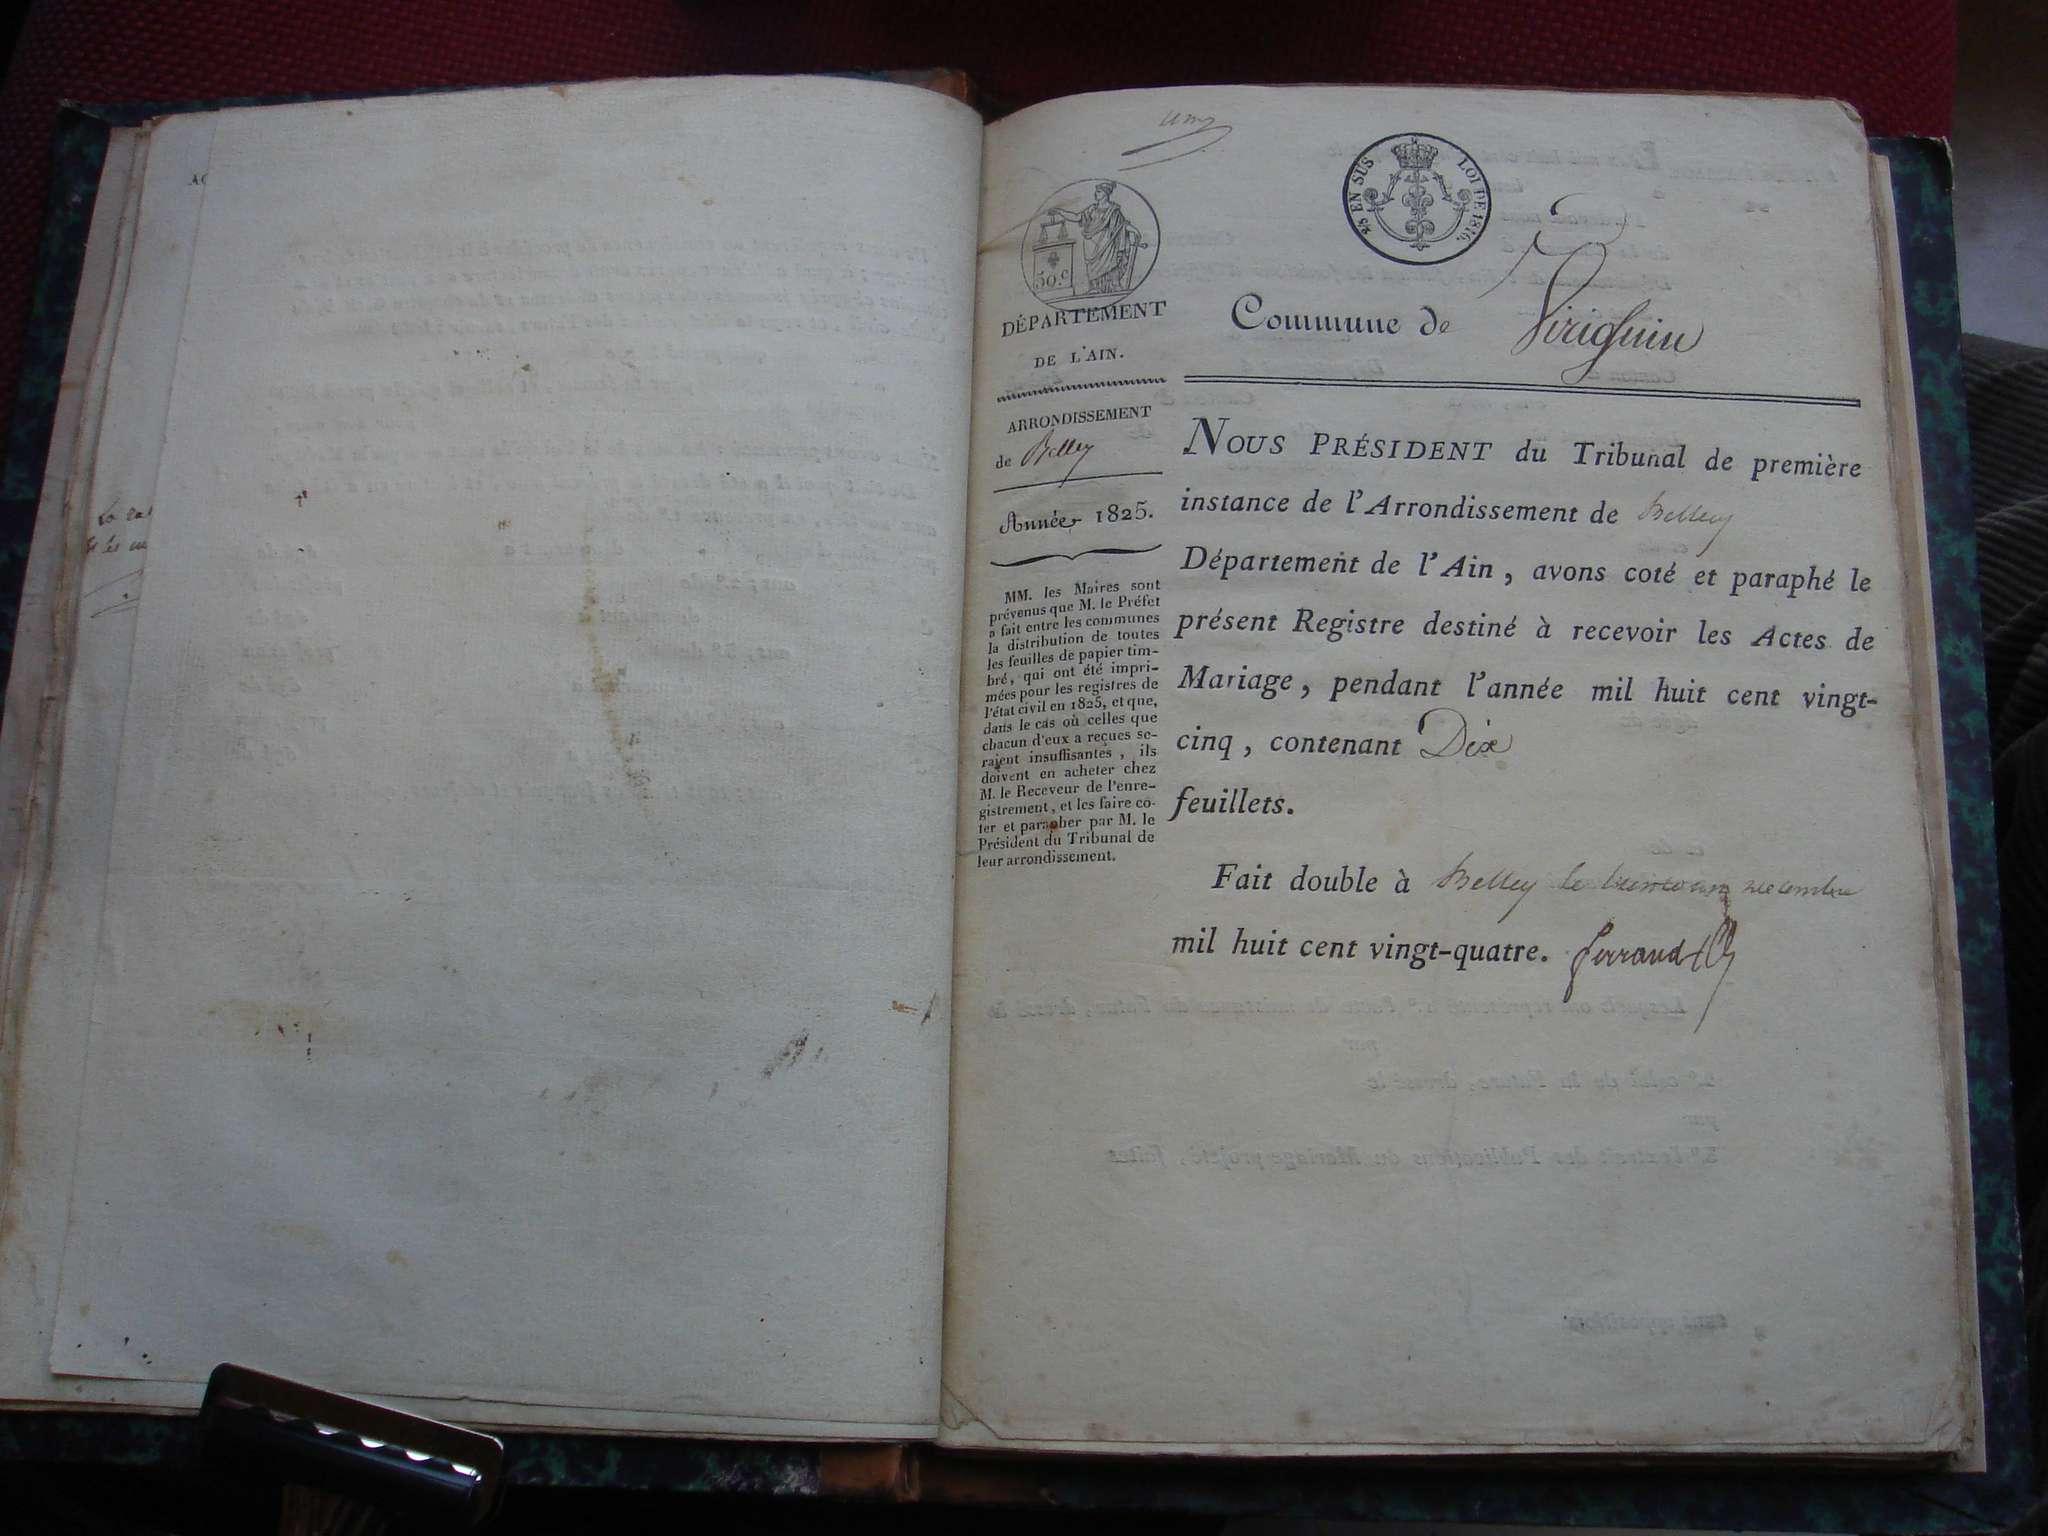 La ra
& les m
un
50.c
DÉPARTEMENT
DE L'AIN.
ARRONDISSEMENT
de Belley
Année 1825.
MM. les Maires sont
prévenus que M. le Préfet
a fait entre les communes
la distribution de toutes
les feuilles de papier tim-
bré, qui ont été impri-
mées pour les registres de
l'état civil en 1825, et que,
dans le cas où celles que
chacun d'eux a reçues se-
raient insuffisantes, ils
doivent en acheter chez
M. le Receveur de l'enre-
gistrement, et les faire co-
ter et parapher par M. le
Président du Tribunal de
leur arrondissement.
EN SUS LOI DE 1816.
Commune de Virignin
NOUS PRÉSIDENT du Tribunal de première
instance de l'Arrondissement de Belley
Département de l'Ain, avons coté et paraphé le
présent Registre destiné à recevoir les Actes de
Mariage, pendant l'année mil huit cent vingt-
cinq, contenant Dix
feuillets.
Fait double à Belley le trente un decembre
mil huit cent vingt-quatre. Ferrand